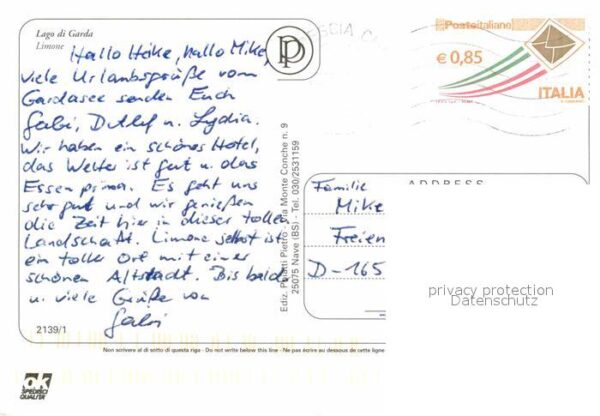 Lago di Garda
Limone
Hallo Heike, hallo Mike,
viele Urlaubsgrüße vom
Gardasee senden Euch
Gabi, Detlef u. Lydia.
Wir haben ein schönes Hotel,
das Wetter ist gut u. das
Essen prima. Es geht uns
sehr gut und wir genießen
die Zeit hier in dieser tollen
Landschaft. Limone selbst ist
ein toller Ort mit einer
schönen Altstadt. Bis bald
u. viele Grüße von
Gabi
2139/1
Non scrivere al di sotto di questa riga - Do not write below this line - Ne pas écrire au dessous de cette ligne
ok
SPEDISCI
QUALITÀ
Ediz. Poletti Pietro - Via Monte Conche n. 9
25075 Nave (BS) - Tel. 030/2531159
BRESCIA
Posteitaliane
€ 0,85
ITALIA
ADDRESS
Familie
Mike
Freien
D-165
privacy protection
Datenschutz